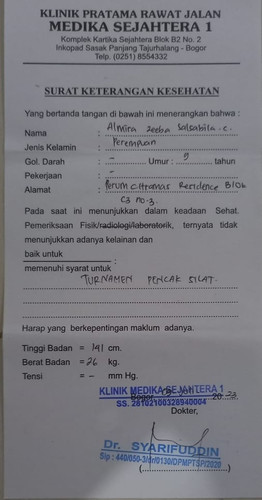 KLINIK PRATAMA RAWAT JALAN
MEDIKA SEJAHTERA 1
Komplek Kartika Sejahtera Blok B2 No. 2
Inkopad Sasak Panjang Tajurhalang - Bogor
Telp. (0251) 8554332
SURAT KETERANGAN KESEHATAN
Yang bertanda tangan di bawah ini menerangkan bahwa :
Nama : Almira Zeeba Salsabila. C.
Jenis Kelamin : Perempuan
Gol. Darah : - Umur : 9 tahun
Pekerjaan : -
Alamat : Perum Citramas Residence Blok
C3 no. 3.
Pada saat ini menunjukkan dalam keadaan Sehat.
Pemeriksaan Fisik/radiologi/laboratorik, ternyata tidak
menunjukkan adanya kelainan dan
baik untuk :
memenuhi syarat untuk
TURNAMEN PENCAK SILAT.
Harap yang berkepentingan maklum adanya.
Tinggi Badan = 141 cm.
Berat Badan = 26 kg.
Tensi = - mm Hg.
KLINIK MEDIKA SEJAHTERA 1
Bogor, 20 23
SS. 28102100328940004
Dokter,
Dr. SYARIFUDDIN
Sip : 440/050-3/dr/0130/DPMPTSP/2020